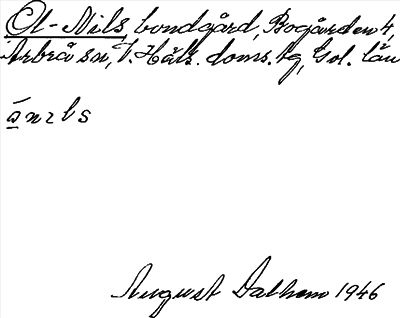 Ol-Nils, bondgård, Bogården 4,
Arbrå sn, V. Häls. doms. tg, Gol. län
á̱ n z l s
August Dalhem 1946